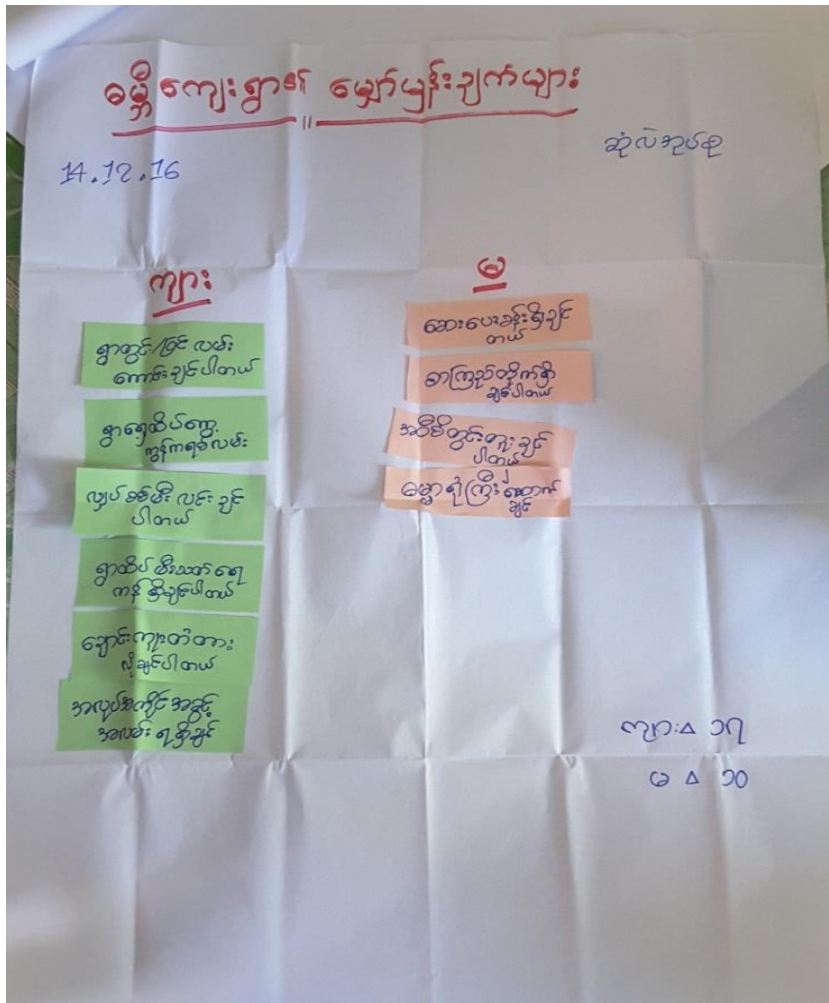 ဓမ္ဗီကျေးရွာ၏ မျှော်မှန်းချက်များ
14.12.16
ဆုံလဲအုပ်စု
ကျား
ရွာတွင်း/ပြင် လမ်း
ကောင်းချင်ပါတယ်
ရွာရှေ့ထိပ်
ကွန်ကရစ်လမ်း
လျှပ်စစ်မီး လင်းချင်
ပါတယ်
ရွာထိပ် မီးသတ်ရေ
ကန် ရှိချင်ပါတယ်
ချောင်းကူးတံတား
လိုချင်ပါတယ်
အလုပ်အကိုင် အခွင့်
အလမ်း ရရှိချင်
မ
ဆေးပေးခန်းရှိချင်
တယ်
စာကြည့်တိုက်ရှိ
ချင်ပါတယ်
အဝီစိတွင်းတူးချင်
ပါတယ်
ဓမ္မာရုံကြီး ဆောက်
ချင်
ကျား ၁၇
မ ၁၀